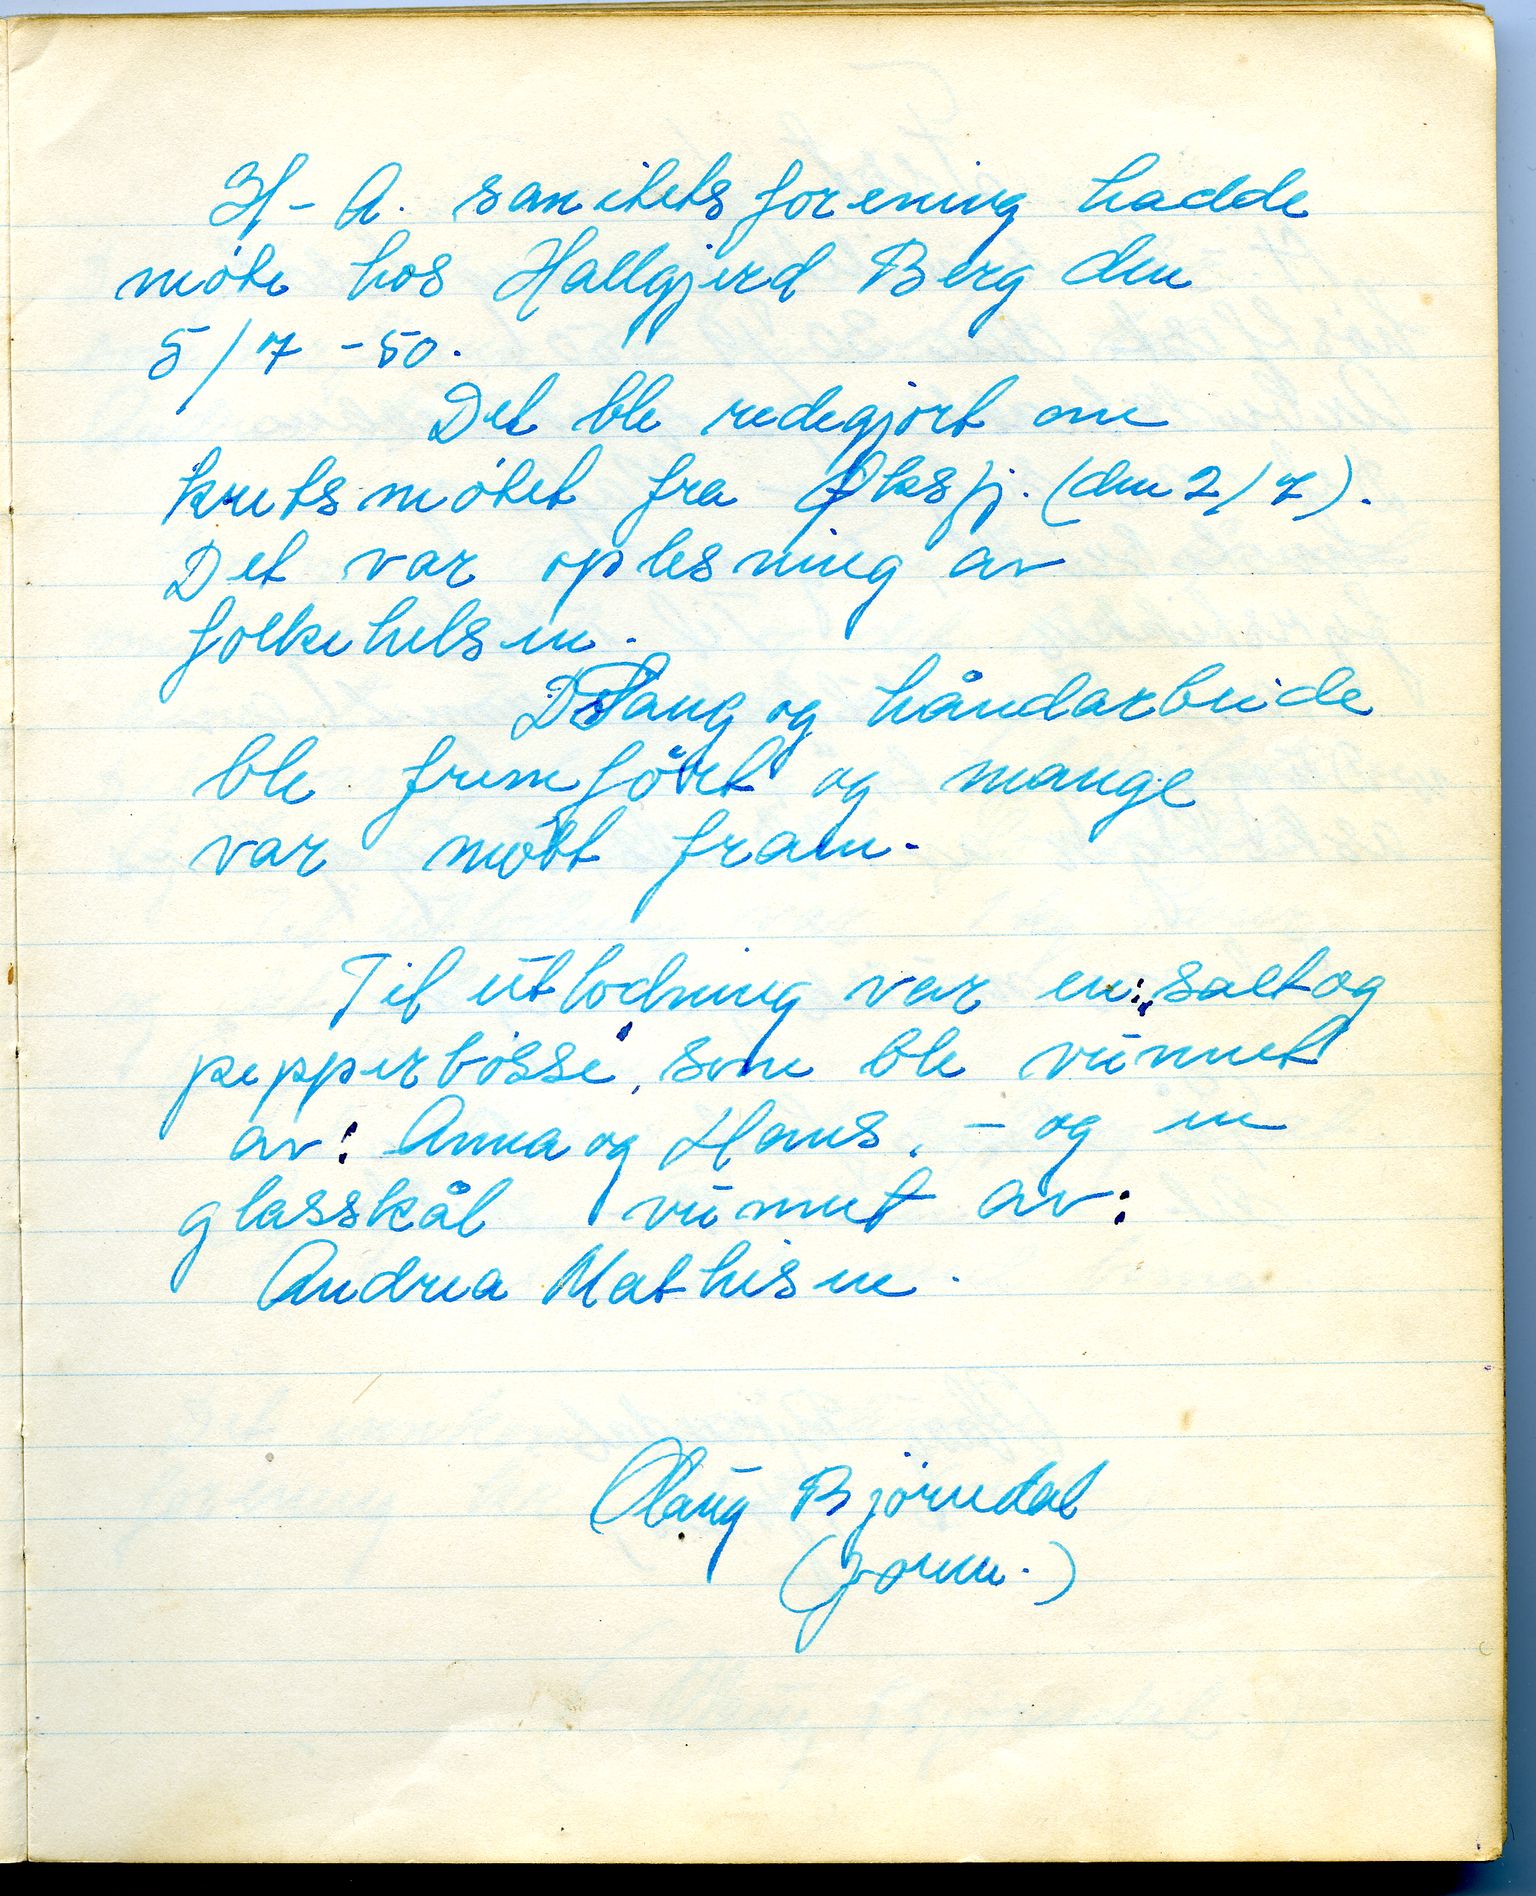 H - A. sanitetsforening hadde
møte hos Hallgjerd Berg den
5/7 - 50.
Det ble redegjort om
kretsmøtet fra Øksfj. (den 2/7).
Det var oplesning av
folkehelsen.
Sang og håndarbeide
ble fremført og mange
var møtt fram.
Til utlodning var en: "salt og
pepperbøsse", som ble vunnet
av: Anna og Hans. - og en
glasskål vunnet av:
Andrea Mathisen.
Olaug Bjørndal
(form.)